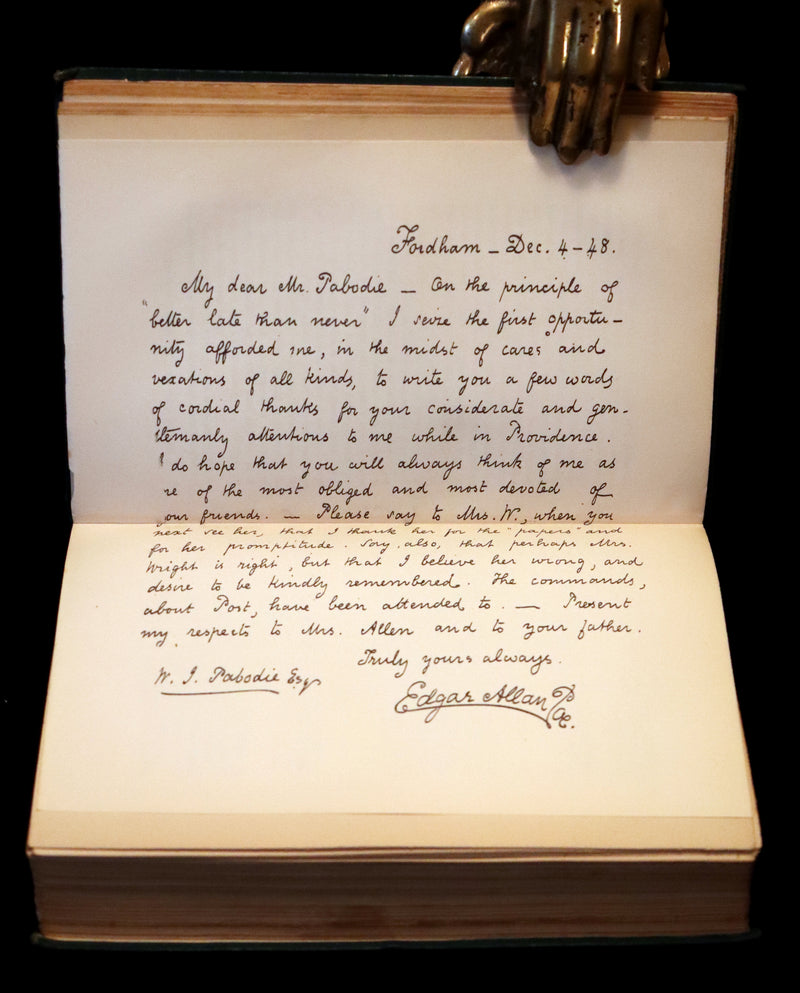 Fordham – Dec. 4–48.
My dear Mr. Pabodie — On the principle of
"better late than never" I seize the first opportu–
nity afforded me, in the midst of cares and
vexations of all kinds, to write you a few words
of cordial thanks for your considerate and gen-
tlemanly attentions to me while in Providence.
I do hope that you will always think of me as
re of the most obliged and most devoted of
your friends. — Please say to Mrs. W., when you
next see her, that I thank her for the "papers" and
for her promptitude. Say, also, that perhaps Mrs.
Wright is right, but that I believe her wrong, and
desire to be kindly remembered. The commands,
about Post, have been attended to. — Present
my respects to Mrs. Allen and to your father.
Truly yours always.
W. J. Pabodie Esqr
Edgar Allan Poe.